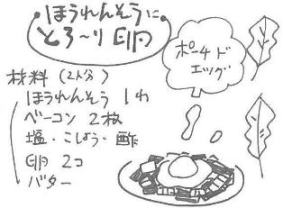 ほうれんそうに
とろ〜り卵
ポーチド
エッグ
材料(2人分)
ほうれんそう 1わ
ベーコン 2枚
塩・こしょう・酢
卵 2コ
バター